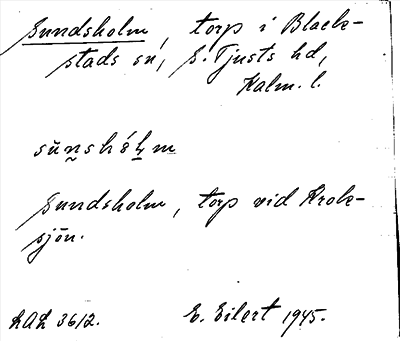 Sundsholm, torp i Black-
stads sn, S. Tjusts hd,
Kalm. l.
Sundsholm, torp vid Krok-
sjön.
LAL 3612. E. Eilert 1945.